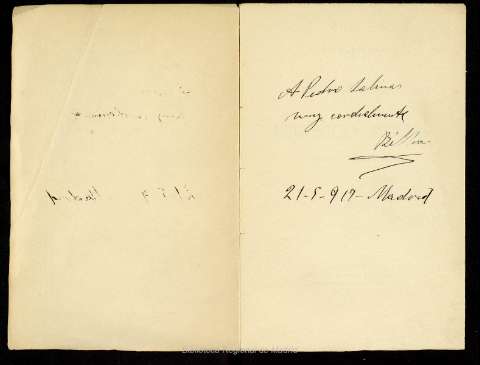 A Pedro Salinas
muy cordialmente
21-5-919-Madrid
Biblioteca Regional de Madrid